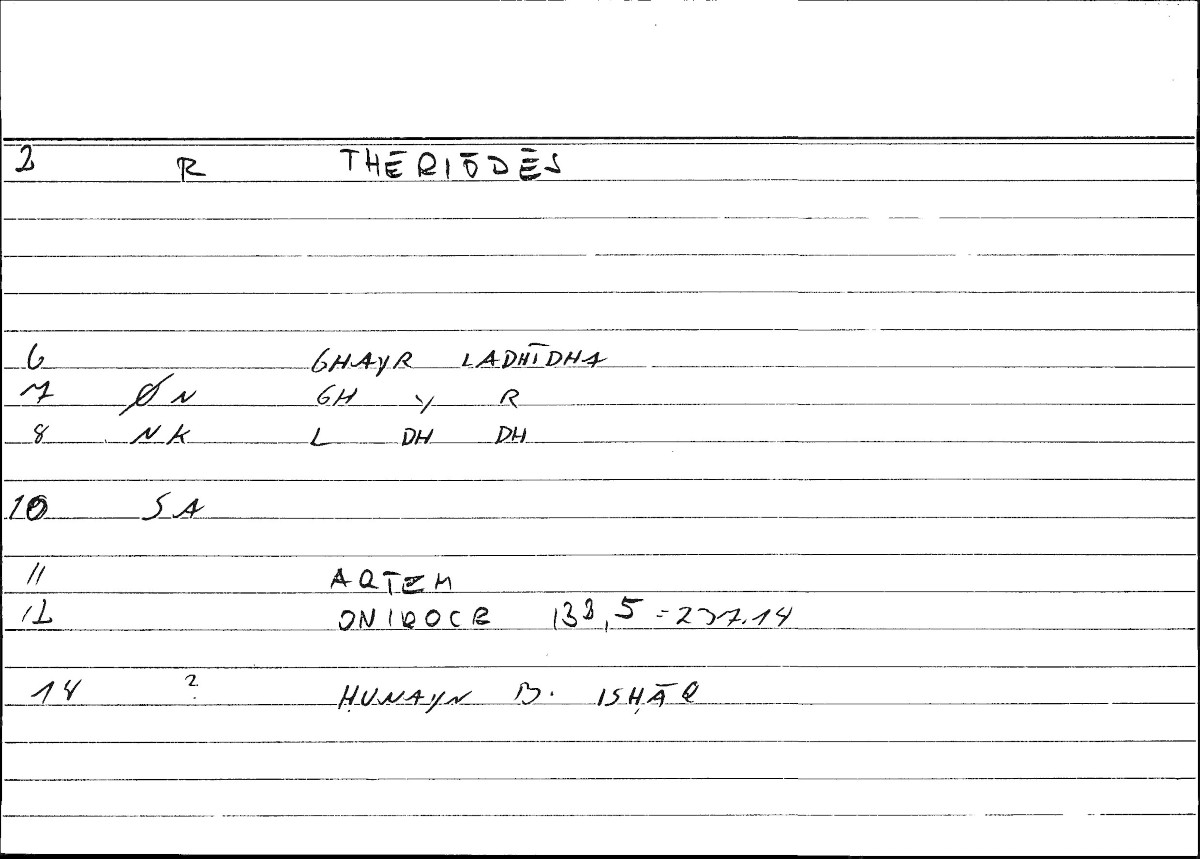 2 R THĒRIŌDĒS
6 GHAYR LADHĪDHA
7 ØN GH Y R
8 NK L DH DH
10 SA
11 ARTEM
12 ONIROCR 133,5 = 237.14
14 ? ḤUNAYN B. ISḤĀQ